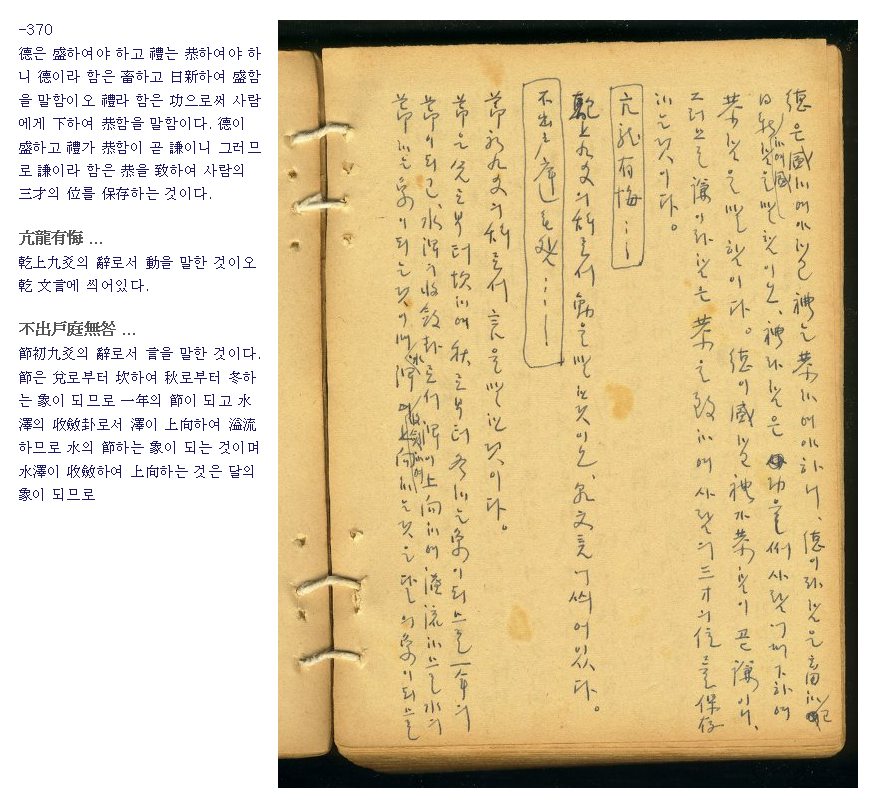 -370
德은 盛하여야 하고 禮는 恭하여야 하
니 德이라 함은 畜하고 日新하여 盛함
을 말함이오 禮라 함은 功으로써 사람
에게 下하여 恭함을 말함이다. 德이
盛하고 禮가 恭함이 곧 謙이니 그러므
로 謙이라 함은 恭을 致하여 사람의
三才의 位를 保存하는 것이다.
亢龍有悔 ...
乾上九爻의 辭로서 動을 말한 것이오
乾 文言에 씌어있다.
不出戶庭無咎 ...
節初九爻의 辭로서 言을 말한 것이다.
節은 兌로부터 坎하여 秋로부터 冬하
는 象이 되므로 一年의 節이 되고 水
澤의 收斂卦로서 澤이 上向하여 溢流
하므로 水의 節하는 象이 되는 것이며
水澤이 收斂하여 上向하는 것은 달의
象이 되므로
德은 盛하여야 하고 禮는 恭하여야 하니, 德이라 함은 畜하고
日新하여 盛함을 말함이오, 禮라 함은 功을써 사람에게 下하여
恭함을 말함이다. 德이 盛하고 禮가 恭함이 곧 謙이니,
그러므로 謙이라 함은 恭을 致하여 사람의 三才의 位를 保存
하는 것이다.
亢龍有悔……
乾上九爻의 辭로서 動을 말한 것이오, 乾 文言에 씌어있다.
不出戶庭无咎……
節初九爻의 辭로서 言을 말한 것이다.
節은 兌로부터 坎하여 秋로부터 冬하는 象이 되므로 一年의
節이 되고, 水澤의 收斂卦로서 澤이 上向하여 溢流하므로 水의
節하는 象이 되는 것이며 水澤이 收斂하여 上向하는 것은 달의 象이 되므로